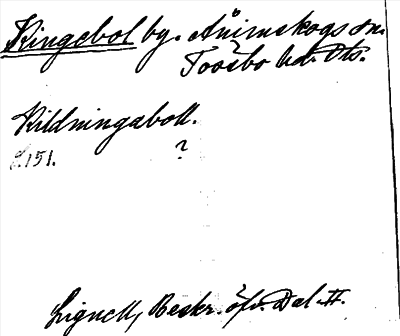 Ringebol by. Ånimskogs sn.
Tössbo hd. Dls.
Rildningaboll.
S. 151. ?
Lignell, Beskr. öfv. Dal II.